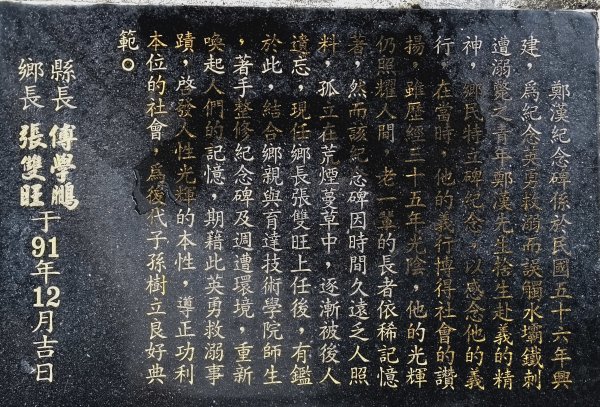 鄭漢紀念碑係於民國五十六年興
建，為紀念英勇救溺而誤觸水壩鐵刺
遭溺斃之青年鄭漢先生捨生赴義的精
神，鄉民特立碑紀念，以感念他的義
行，在當時，他的義行博得社會的讚
揚，雖歷經三十五年光陰，他的光輝
仍照耀人間，老一輩的長者依稀記憶
著，然而該紀念碑因時間久遠乏人照
料，孤立在荒煙蔓草中，逐漸被後人
遺忘，現任鄉長張雙旺上任後，有鑑
於此，結合鄉親與育達技術學院師生
，著手整修紀念碑及週遭環境，重新
喚起人們的記憶，期藉此英勇救溺事
蹟，啓發人性光輝的本性，導正功利
本位的社會，為後代子孫樹立良好典
範。
縣長 傅學鵬
鄉長 張雙旺 于91年12月吉日